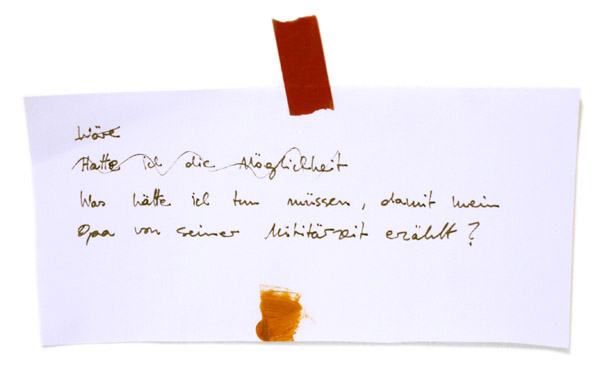 Wäre
Hätte ich die Möglichkeit
Was hätte ich tun müssen, damit mein
Opa von seiner Militärzeit erzählt?